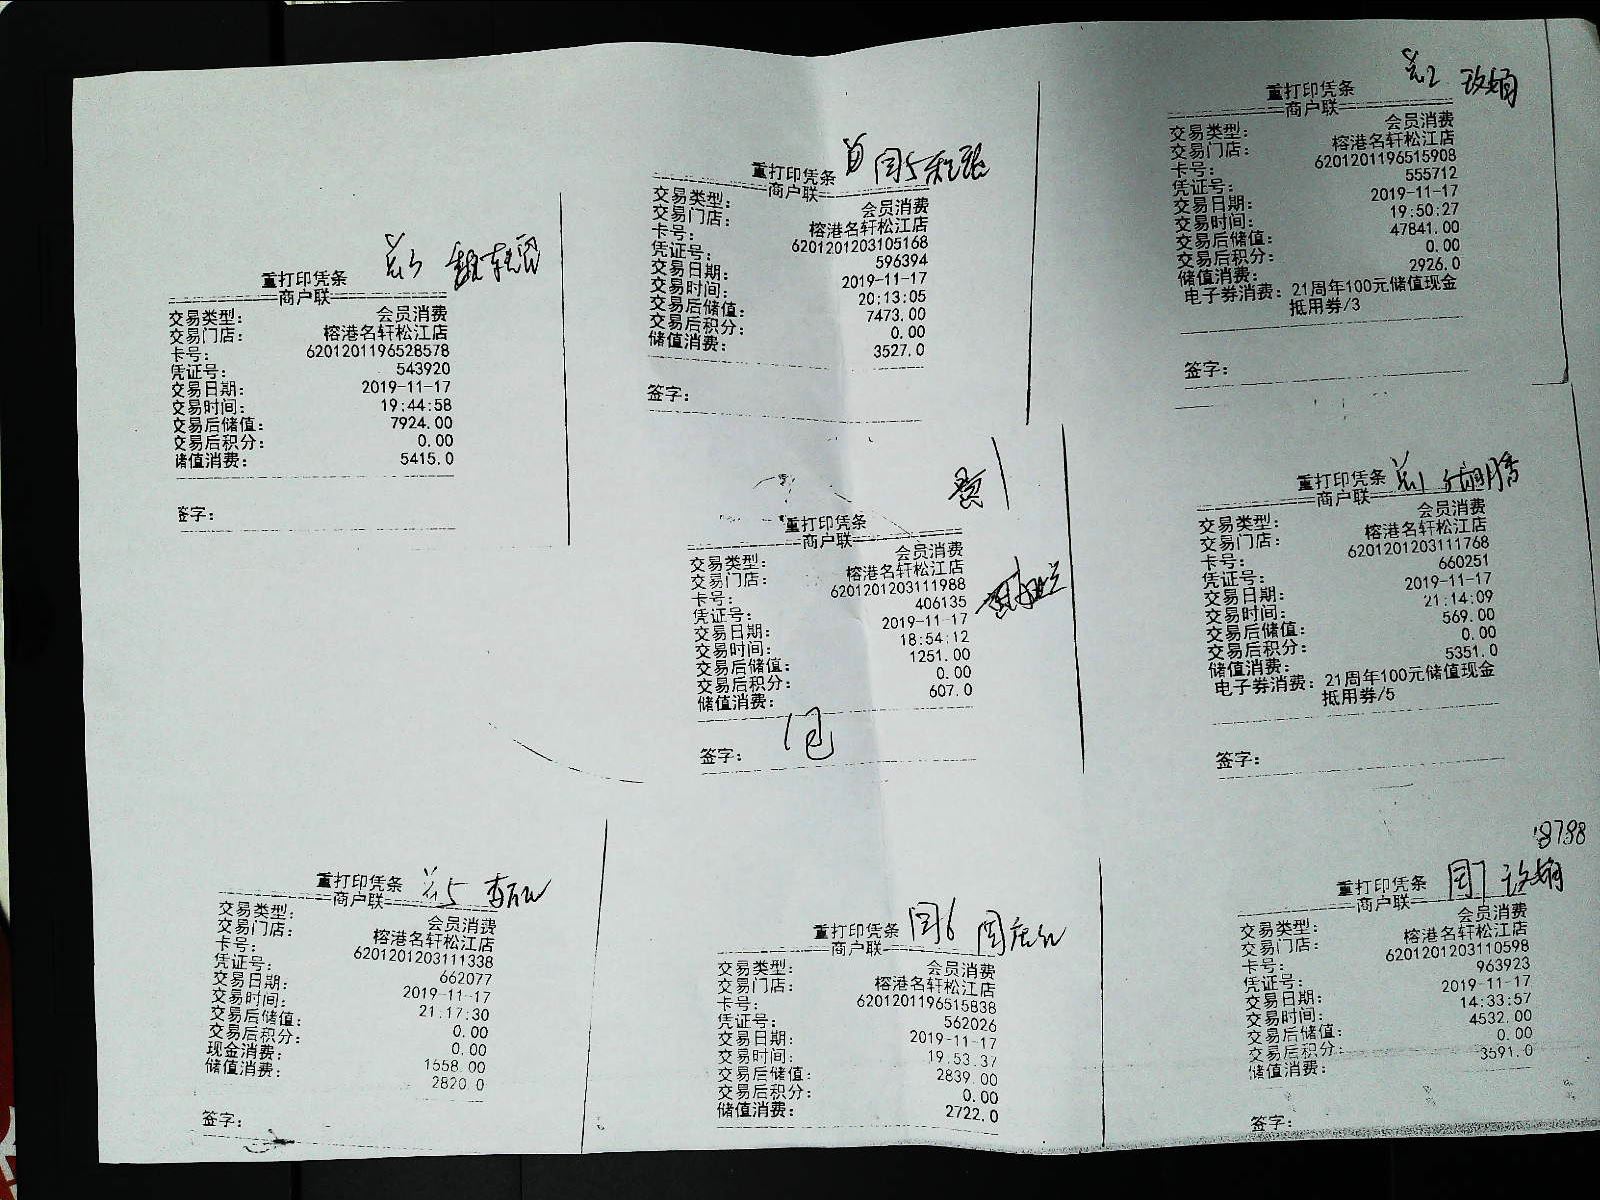 重打印凭条
商户联
交易类型： 会员消费
交易门店： 榕港名轩松江店
卡号： 6201201196528578
凭证号： 543920
交易日期： 2019-11-17
交易时间： 19:44:58
交易后储值： 7924.00
交易后积分： 0.00
储值消费： 5415.0
签字：
重打印凭条
商户联
交易类型： 会员消费
交易门店： 榕港名轩松江店
卡号： 6201201203105168
凭证号： 596394
交易日期： 2019-11-17
交易时间： 20:13:05
交易后储值： 7473.00
交易后积分： 0.00
储值消费： 3527.0
签字：
重打印凭条
商户联
交易类型： 会员消费
交易门店： 榕港名轩松江店
卡号： 6201201196515908
凭证号： 555712
交易日期： 2019-11-17
交易时间： 19:50:27
交易后储值： 47841.00
交易后积分： 0.00
储值消费： 2926.0
电子券消费： 21周年100元储值现金
抵用券/3
签字：
重打印凭条
商户联
交易类型： 会员消费
交易门店： 榕港名轩松江店
卡号： 6201201203111988
凭证号： 406135
交易日期： 2019-11-17
交易时间： 18:54:12
交易后储值： 1251.00
交易后积分： 0.00
储值消费： 607.0
签字： 1包
重打印凭条
商户联
交易类型： 会员消费
交易门店： 榕港名轩松江店
卡号： 6201201203111768
凭证号： 660251
交易日期： 2019-11-17
交易时间： 21:14:09
交易后储值： 569.00
交易后积分： 0.00
储值消费： 5351.0
电子券消费： 21周年100元储值现金
抵用券/5
签字：
重打印凭条
商户联
交易类型： 会员消费
交易门店： 榕港名轩松江店
卡号： 6201201203111338
凭证号： 662077
交易日期： 2019-11-17
交易时间： 21:17:30
交易后储值： 0.00
交易后积分： 0.00
现金消费： 1558.00
储值消费： 2820.0
签字：
重打印凭条
商户联
交易类型： 会员消费
交易门店： 榕港名轩松江店
卡号： 6201201196515838
凭证号： 562026
交易日期： 2019-11-17
交易时间： 19:53:37
交易后储值： 2839.00
交易后积分： 0.00
储值消费： 2722.0
18798
重打印凭条
商户联
交易类型： 会员消费
交易门店： 榕港名轩松江店
卡号： 6201201203110598
凭证号： 963923
交易日期： 2019-11-17
交易时间： 14:33:57
交易后储值： 4532.00
交易后积分： 0.00
储值消费： 3591.0
签字：